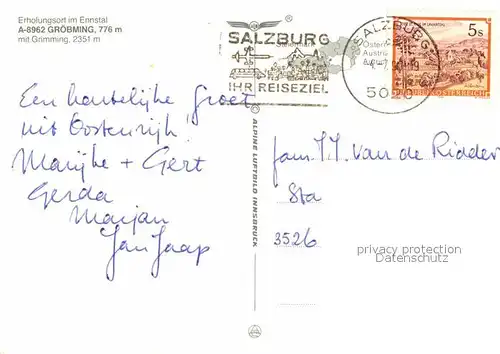 Erholungsort im Ennstal
A-8962 GRÖBMING, 776 m
mit Grimming, 2351 m
SALZBURG
Steiermark
IHR REISEZIEL
SALZBURG
50
5s
REPUBLIK ÖSTERREICH
Een hartelijke Groet
uit Oostenrijk!
Marijke + Gert
Gerda
Marjan
Jan Jaap
ALPINE LUFTBILD INNSBRUCK
fam. J.J. van de Ridder
Sta
3526
privacy protection